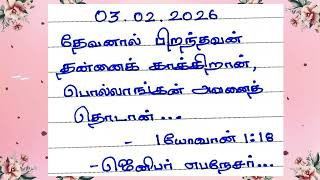 03.02.2026
தேவனால் பிறந்தவன்
தன்னைக் காக்கிறான்,
பொல்லாங்கன் அவனைத்
தொடான்...
- 1யோவான் 1:18
- ஜெனிபர் எபநேசர்...